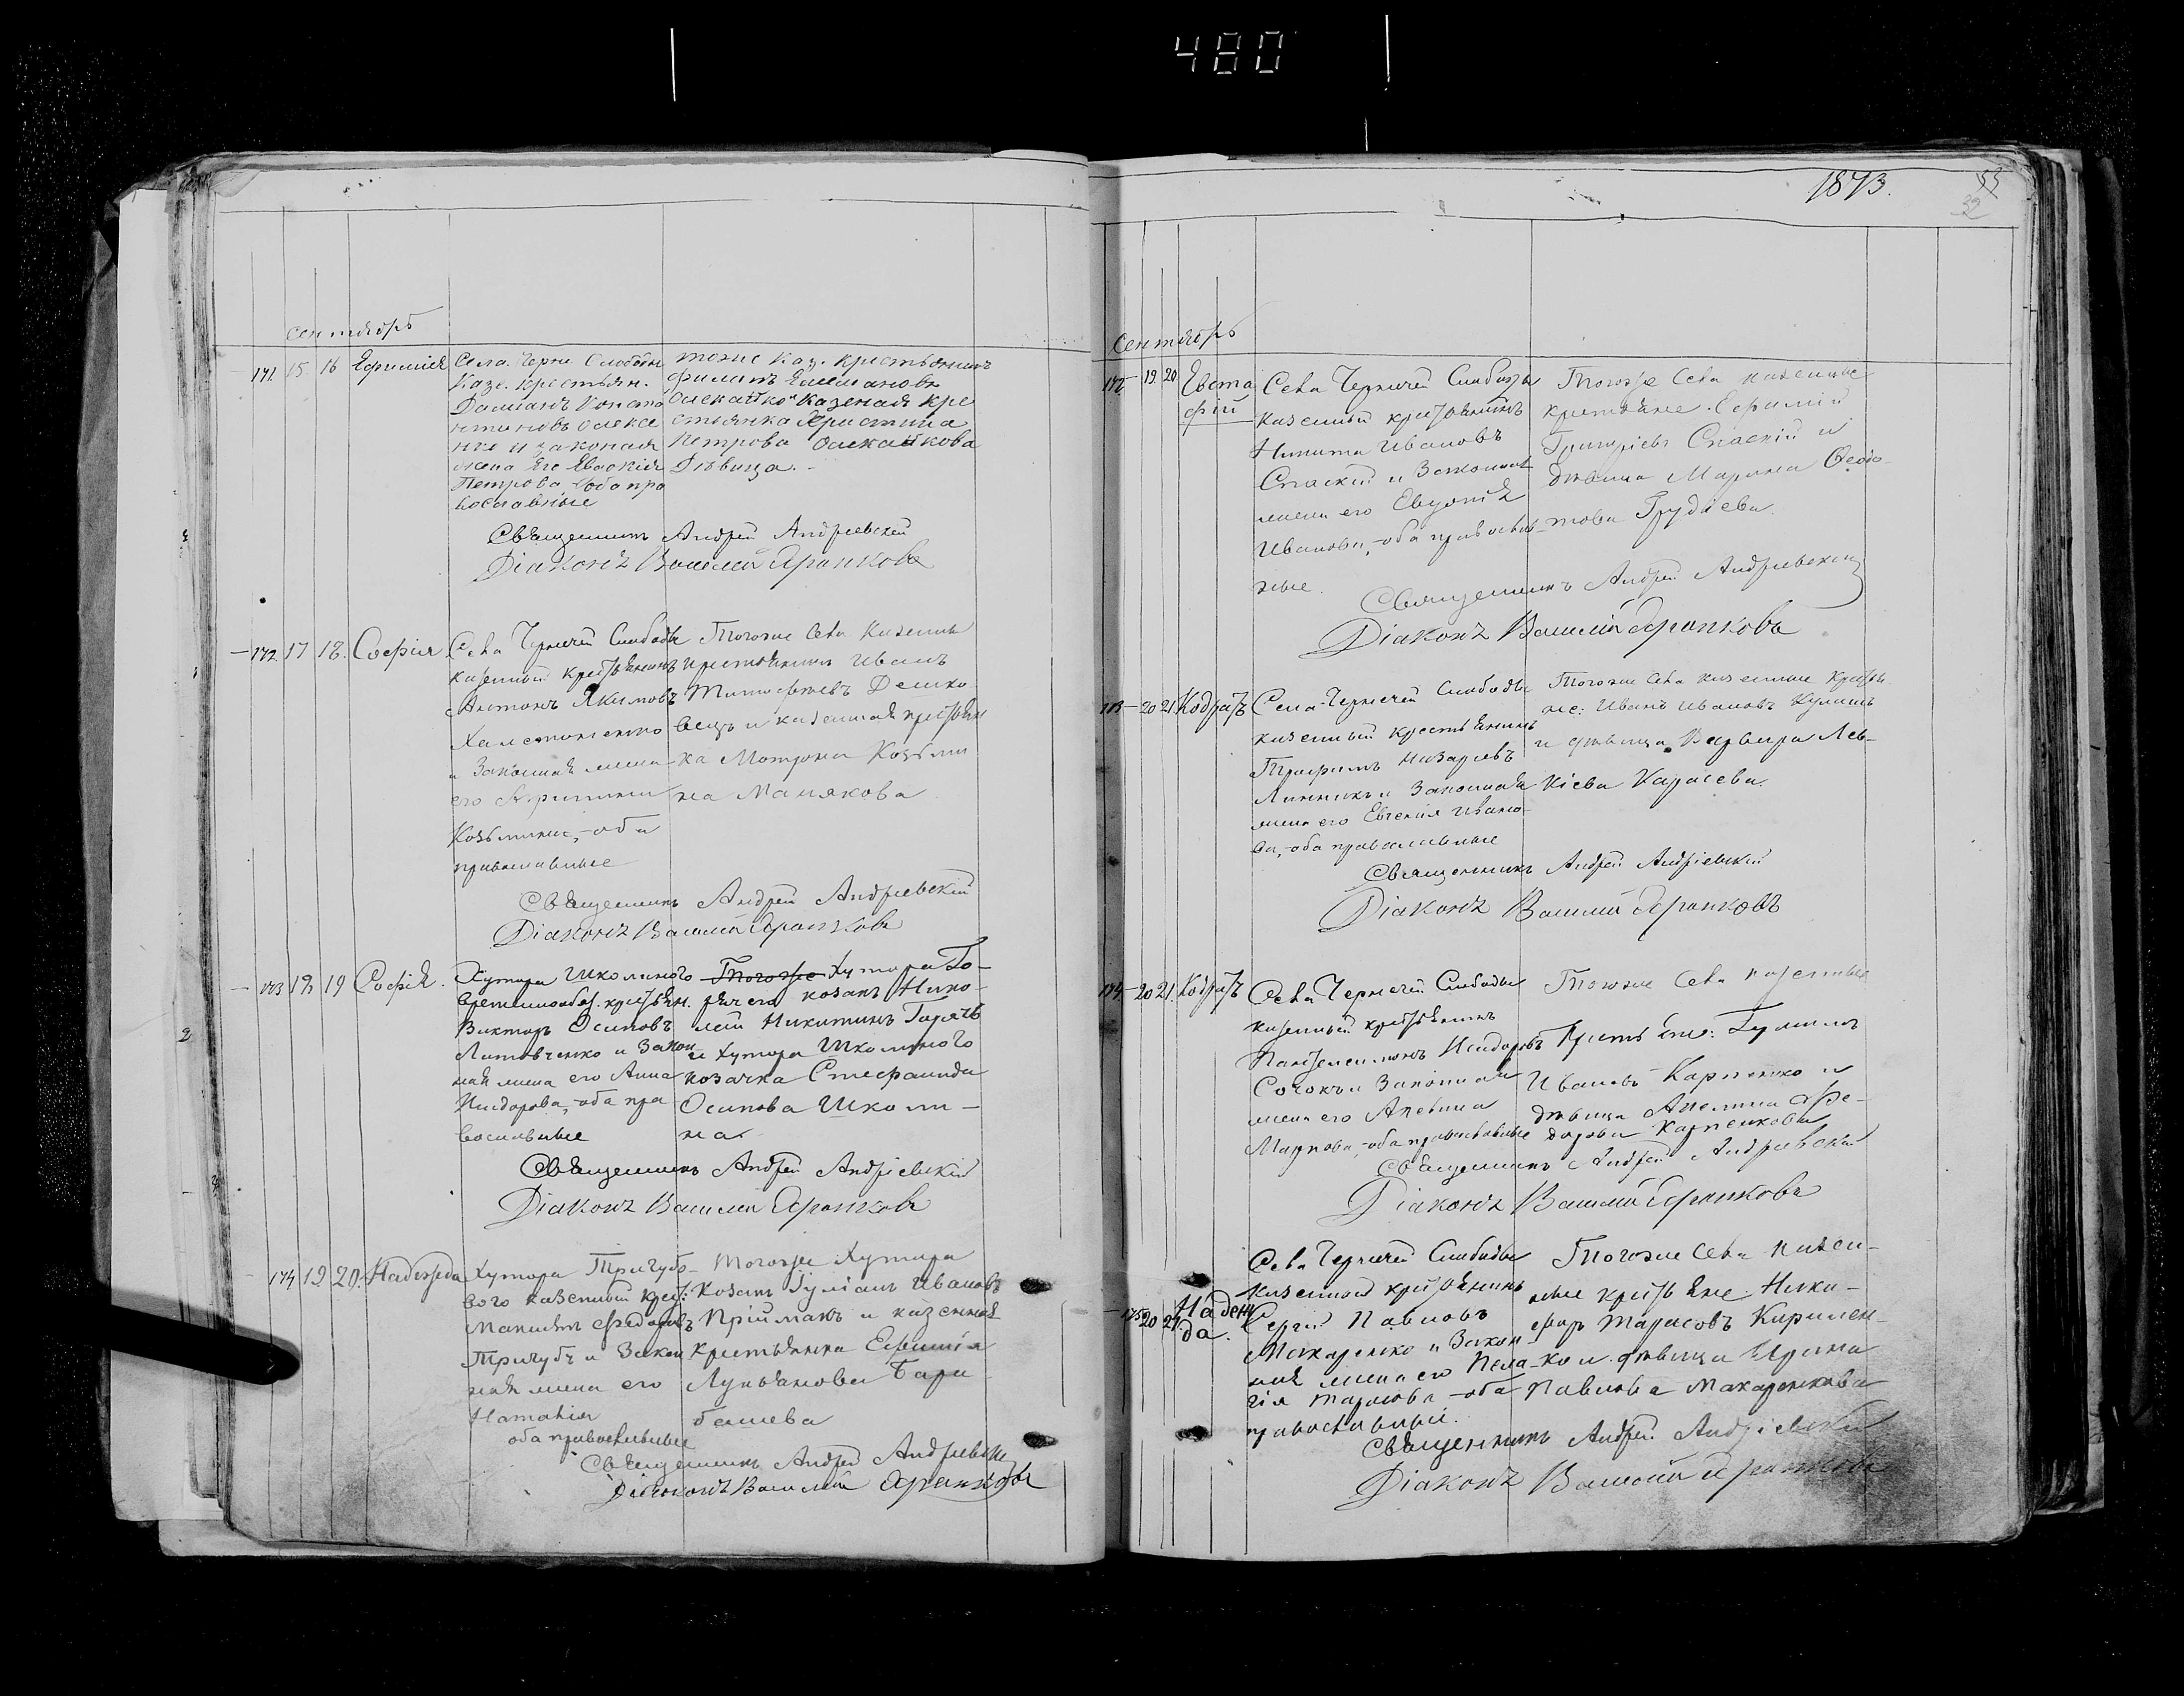 480
1873.
55
32
сентябрь
171 15 16 Ефимія
Села Черни Слободы
Казе. крестьян.
Даміанъ Конста
нтиновъ Олексе
нко и законая
жена Его Евдокія
Петрова оба пра
вославные
тоже Каз. Крестьянинъ
филипъ Емельяновъ
Казеная кре
стьянка Христина
Петрова
Дѣвица.
Священникъ Андрей Андріевскій
Діаконъ Василій
172 17 18. Софія
Села Чернечей Слободы
казенный крестьянинъ
Антонъ Якимовъ
и Законная жена
его
Козьмина, оба
православные
Тогоже Села Казенные
крестьянинъ Иванъ
Тимофеевъ
и казенная крестьян
ка Матрона Козьми
на Манякова
Священникъ Андрей Андріевскій
Діаконъ Василій
173 18 19 Софія.
Хутора Школиного
временнообяз. крестьян.
Викторъ Осиповъ
Литовченко и Закон
ная жена его Анна
Исидорова, оба пра
вославные
Тогоже Хутора Го-
рячего козакъ Нико-
лай Никитинъ Горячъ
и Хутора Школиного
козачка Стефанида
Осипова Школи-
на
Священникъ Андрей Андріевскій
Діаконъ Василій
174 19 20. Надежда
Хутора Тригубо-
вого казенный крес:
Максимъ Федоровъ
Тригубъ и Закон
ная жена его
Наталія
оба православные
Тогоже Хутора
Козакъ Іуліанъ Ивановъ
Пріймакъ и казенная
Крестьянка Евфимія
Лукьянова
Священникъ Андрей Андріевскій
Діаконъ Василій
Сентябрь
172 19 20 Евста
фій
Села Чернечей Слободы
казенный крестьянинъ
Никита Ивановъ
Спаскій и Законная
жена его Евдокія
Иванова, оба православ
ные.
Тогоже Села казенные
крестьяне: Ефимій
Григоріевъ Спаскій и
дѣвица Марина
Священникъ Андрей Андріевскій
Діаконъ Василій
173 20 21 Кодратъ
Села Чернечей Слободы
казенный крестьянинъ
Трофимъ Назаревъ
Линникъ и Законная
жена его Евгенія Ивано
ва, оба православные
Тогоже Села казенные Крестья
не: Иванъ Ивановъ Кулишъ
и дѣвица Варвара Лев-
кіева Карасева.
Священникъ Андрей Андріевскій
Діаконъ Василій
174 20 21. Кодратъ
Села Чернечей Слободы
казенный крестьянинъ
Пантелеимонъ Исидоровъ
Сотокъ и Законная
жена его Акевина
Маркова, оба православные
Тогоже Села казенные
Крестьяне:
Ивановъ Карпенко и
дѣвица Акелина Фе-
дорова Карпенкова
Священникъ Андрей Андріевскій
Діаконъ Василій
175 20 21 Надеж
да.
Села Чернечей Слободы
казенный крестьянинъ
Сергій Павловъ
Макаренко и Закон
ная жена его Пела
гія Тарасова оба
православныи.
Тогоже Села казен-
ные крестьяне Ники-
форъ Тарасовъ Кирилен
ко и дѣвица Ирина
Павлова Макаренкова
Священникъ Андрей Андріевскій
Діаконъ Василій